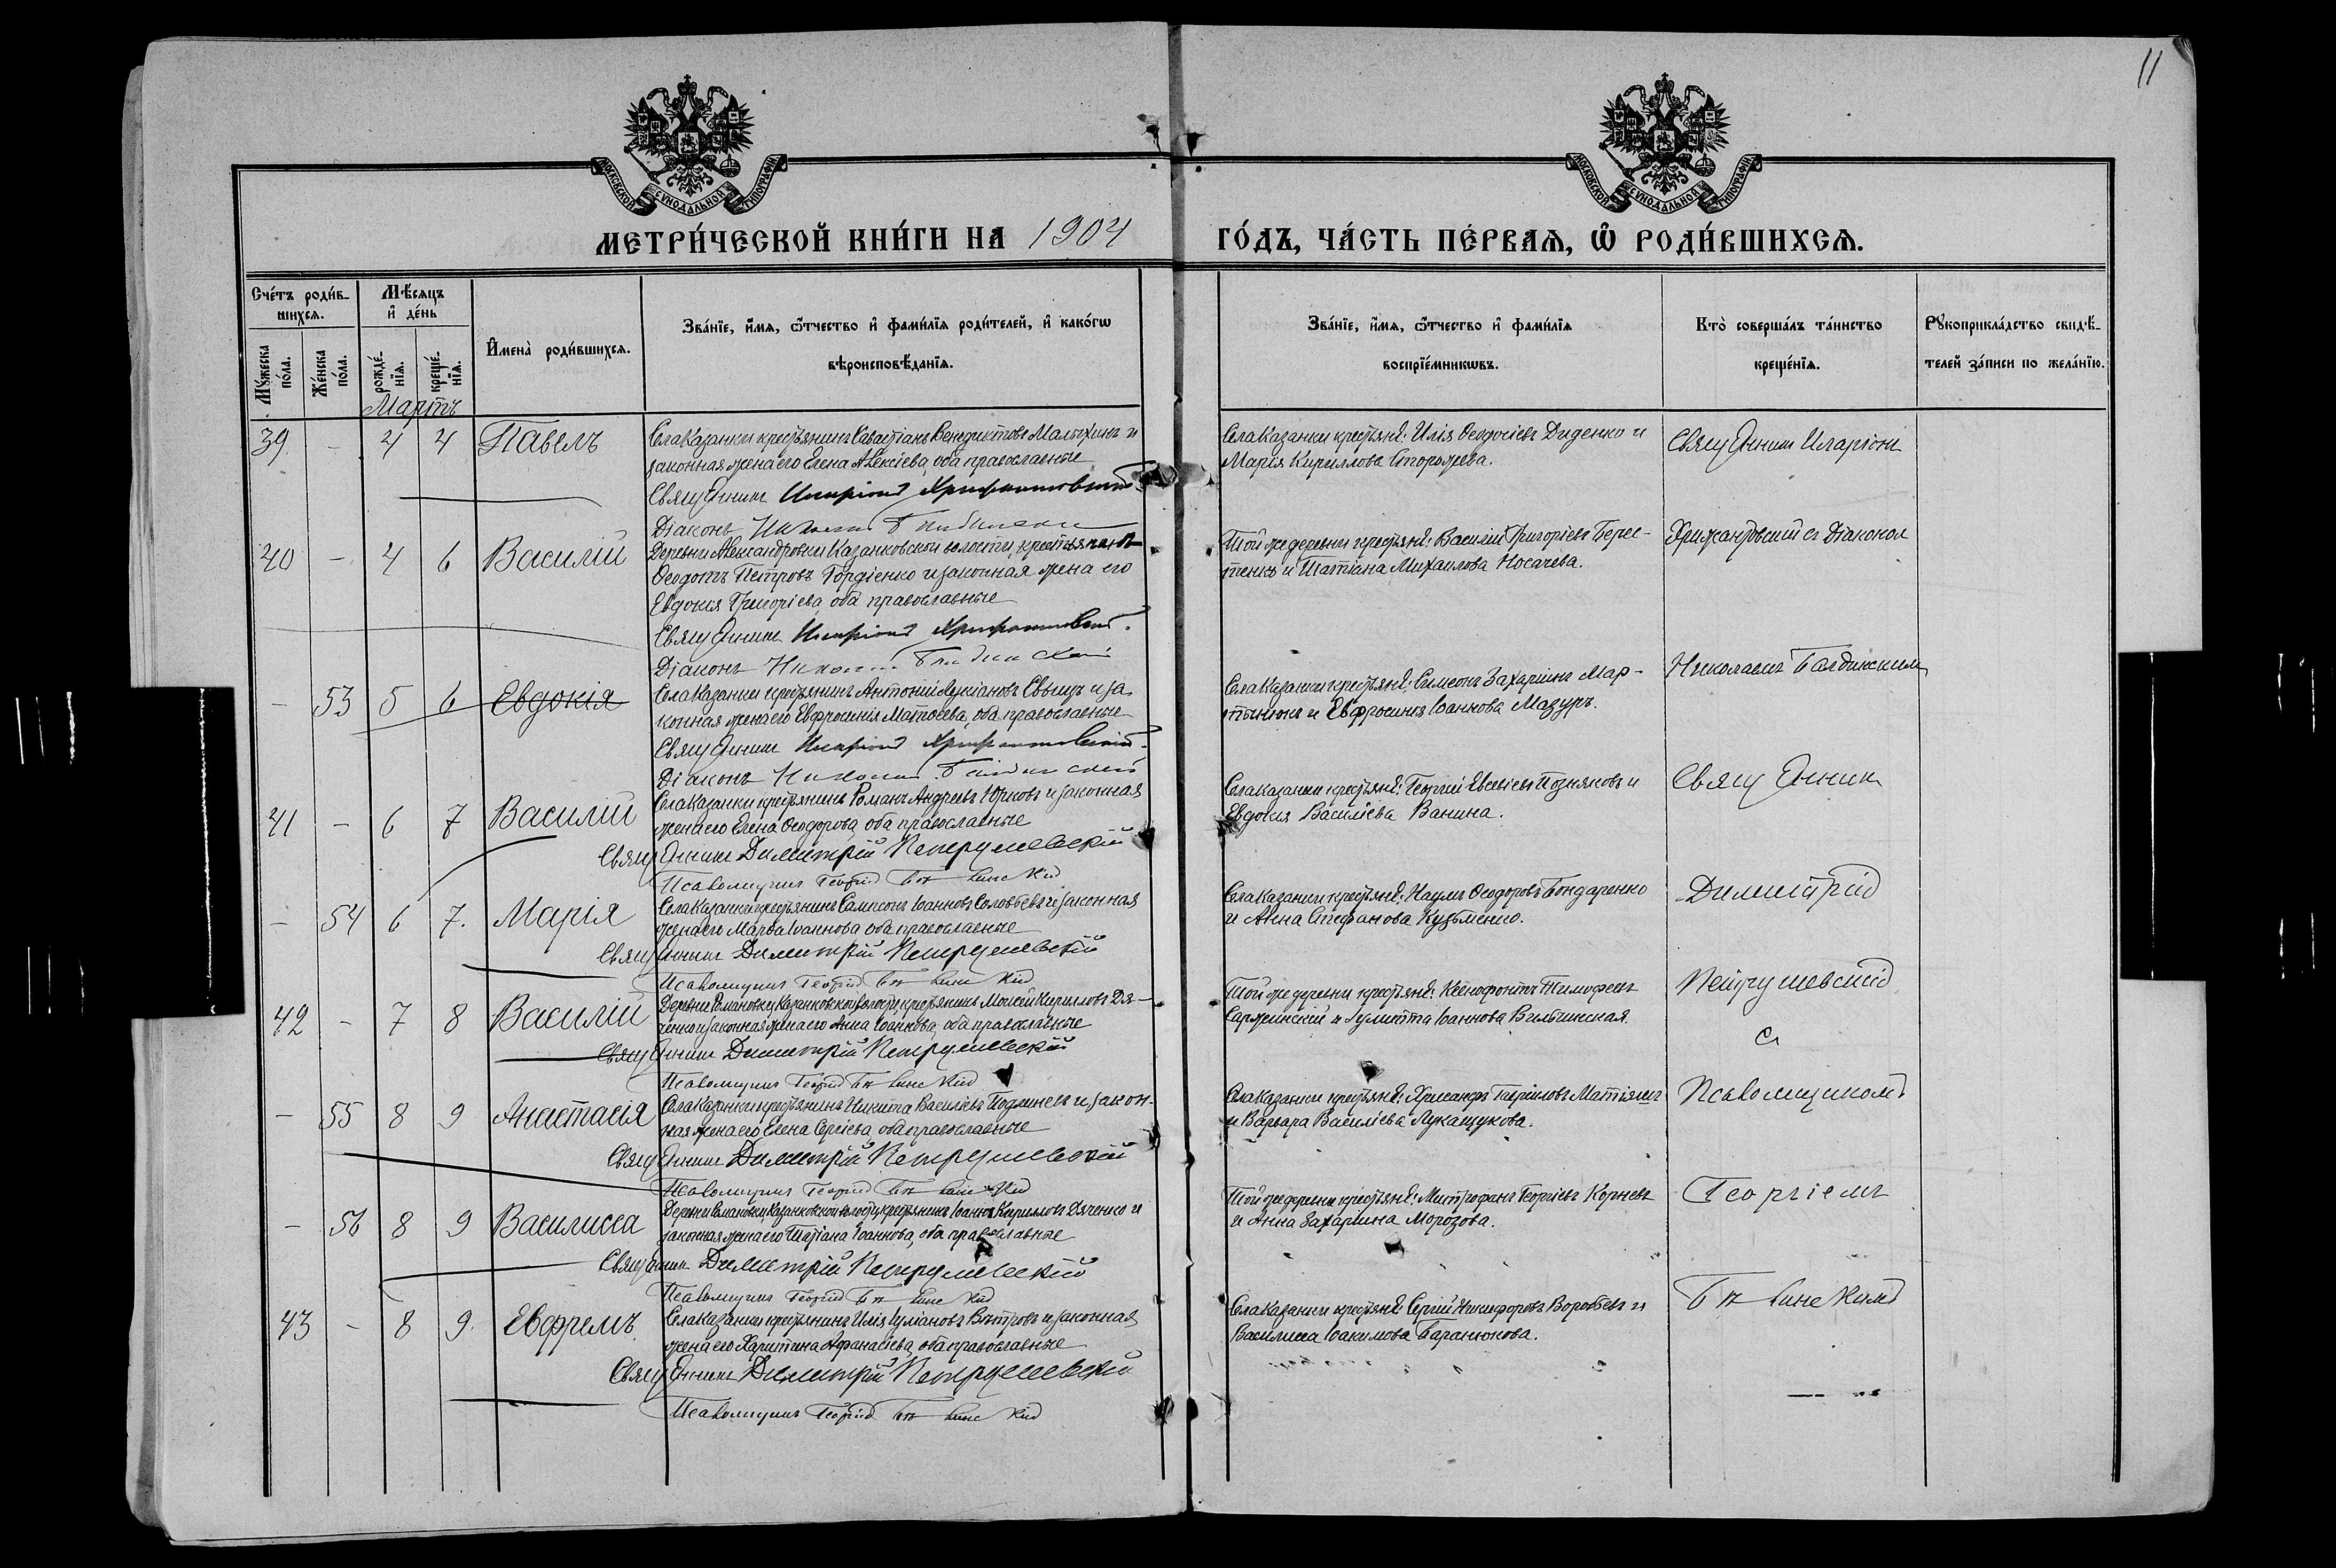 11
МОСКОВСКОЙ СУНОДАЛЬНОЙ ТИПОГРАФІИ
МОСКОВСКОЙ СУНОДАЛЬНОЙ ТИПОГРАФІИ
МЕТРИ́ЧЕСКОЙ КНИ́ГИ НА 1904 ГО́ДЪ, ЧА́СТЬ ПЕ́РВАѦ, Ѡ҆ РОДИ́ВШИХСѦ.
Сче́тъ роди́в-
шихсѧ.
Мꙋ́жеска по́ла.
Же́нска по́ла.
Мѣ́сѧцъ
и҆ де́нь
рожде́-
нїѧ.
креще́-
нїѧ.
И҆мена̀ роди́вшихсѧ.
Зва́нїе, и҆́мѧ, ѻ҆́тчество и҆ фами́лїѧ роди́телей, и҆ како́гѡ
вѣроисповѣ́данїѧ.
Зва́нїе, и҆́мѧ, ѻ҆́тчество и҆ фами́лїѧ
воспрїе́мникѡвъ.
Кто̀ соверша́лъ та́инство
креще́нїѧ.
Рꙋкоприкла́дство свидѣ́-
телей за́писи по жела́нїю.
Мартъ
39. - 4 4 Павелъ
Села Казанки крестьянинъ Савастіанъ Венедиктовъ Малыхинъ и
законная жена его Елена Алексіева, оба православные
Священникъ Иларіонъ Хрисанфовскій
Діаконъ Николай
Села Казанки крестьяне: Илія Ѳеодосіевъ Диденко и
Марія Кириллова Сторожева.
Священник Иларіон
40 - 4 6 Василій
Деревни Александровки Казанковской волости, крестьянинъ
Ѳеодотъ Петровъ Гордіенко и законная жена его
Евдокія Григоріева, оба православные
Священник Иларіонъ
Діаконъ Николай
Той же деревни крестьяне: Василій Григоріевъ Берес-
тенко и Татіана Михаилова Носачева.
съ Діаконом
- 53 5 6 Евдокія
Села Казанки крестьянинъ Антоній Лукіановъ и за-
конная жена его Евфросинія Матѳеева, оба православные
Священник Иларіонъ
Діаконъ Николай
Села Казанки крестьяне: Симеонъ Захаріинъ Мар-
тынюкъ и Евфросинія Іоаннова Мазуръ.
Николаемъ
41 - 6 7 Василій
Села Казанки крестьянинъ Романъ Андреевъ Юрковъ и законная
жена его Елена Ѳеодорова, оба православные
Священник Димитрій Петрушевскій
Псаломщикъ Георгій
Села Казанки крестьяне: Георгій Евсевіевъ Позняковъ и
Евдокія Василіева Ванина.
Священник
- 54 6 7. Марія
Села Казанки крестьянинъ Сампсонъ Іоанновъ Соловьевъ и законная
жена его Марѳа Іоаннова оба православные
Священник Димитрій Петрушевскій
Псаломщикъ Георгій
Села Казанки крестьяне: Наумъ Ѳеодоровъ Бондаренко
и Анна Стефанова Кузьменко.
Димитрій
42 - 7 8 Василій
Деревни Романовки, Казанковской волости, крестьянинъ Моисей Кирилловъ Дя-
ченко и законная жена его Анна Іоаннова, оба православные
Священник Димитрій Петрушевскій
Псаломщикъ Георгій
Той же деревни крестьяне: Ксенофонтъ Тимофеевъ
и Іулитта Іоаннова
Петрушевскій
съ
- 55 8 9 Анастасія
Села Казанки крестьянинъ Никита Василіевъ и закон-
ная жена его Елена Сергіева, оба православные
Священник Димитрій Петрушевскій
Псаломщикъ Георгій
Села Казанки крестьяне: Хрисанфъ Гавріиловъ Матіяшъ
и Варвара Василіева Лукащукова.
Псаломщикомъ
- 56 8 9 Василисса
Деревни Романовки, Казанковской волости, крестьянинъ Іоаннъ Кирилловъ Дяченко и
законная жена его Татіана Іоаннова, оба православные
Священник Димитрій Петрушевскій
Псаломщикъ Георгій
Той же деревни крестьяне: Митрофанъ Георгіевъ Корневъ
и Анна Захаріина Морозова.
Георгіемъ
43 - 8 9. Евфремъ
Села Казанки крестьянинъ Илія Іуліановъ Вѣтровъ и законная
жена его Харитина Афанасіева, оба православные
Священник Димитрій Петрушевскій
Псаломщикъ Георгій
Села Казанки крестьяне: Сергій Никифоровъ Воробьевъ и
Василисса Іоакимова Баранюкова.